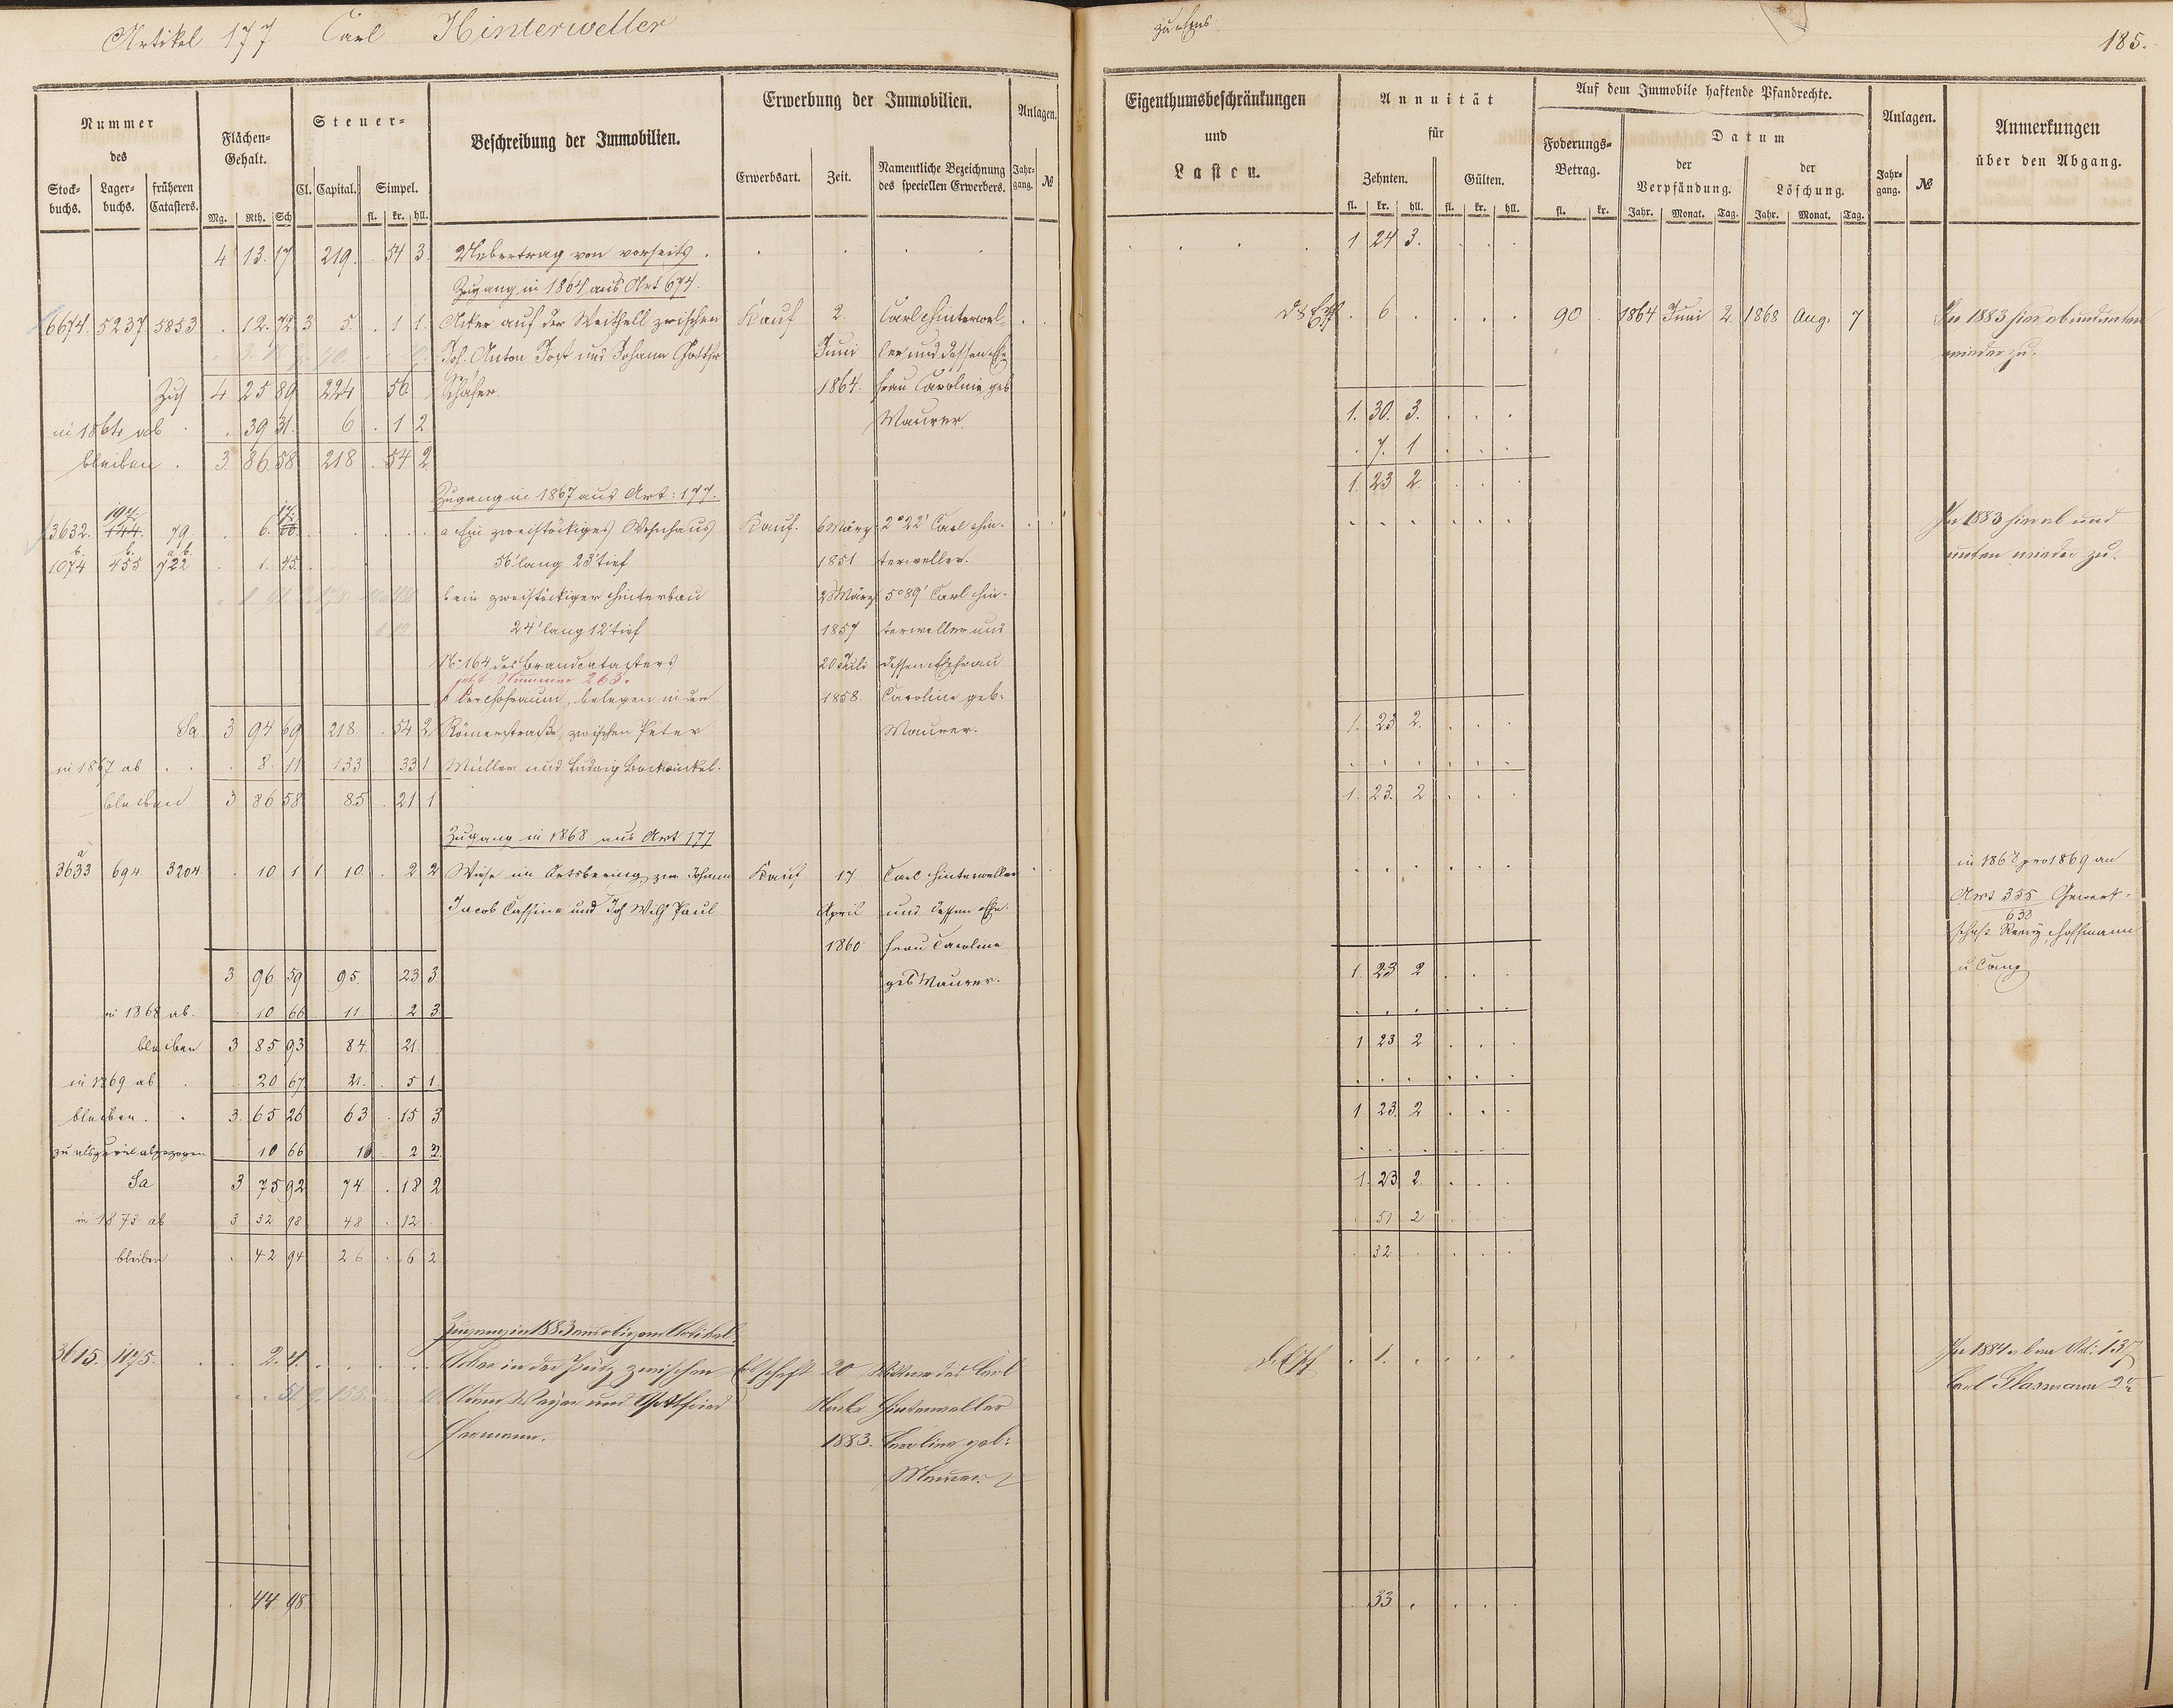 Artikel 177 Carl Hinterweller
zu Ems
185.
Nummer des
Stock-buchs. Lager-buchs. früheren Catasters.
Flächen-Gehalt.
Mg. Rth. Sch
Steuer-
Cl. Capital. Simpel.
fl. kr. hll.
Beschreibung der Immobilien.
Erwerbung der Immobilien.
Erwerbsart. Zeit. Namentliche Bezeichnung des speciellen Erwerbers.
Anlagen.
Jahr-gang. №
Eigenthumsbeschränkungen
und
Lasten.
Annuität
für
Zehnten. Gülten.
fl. kr. hll. fl. kr. hll.
Auf dem Immobile haftende Pfandrechte.
Foderungs-Betrag.
fl. kr.
Datum
der Verpfändung. der Löschung.
Jahr. Monat. Tag. Jahr. Monat. Tag.
Anlagen.
Jahr-gang. №
Anmerkungen
über den Abgang.
4 13. 17 219. . 54 3. Uebertrag von vorseits . 1 24 3.
Zugang in 1864 aus Art 674.
6674. 5237 5853 . 12. 72 3 5. . 1 1. Acker auf der Weithell zwischen Kauf 2. Carl Hinterwel- . 6 . 90 1864 Juni 2. 1868 Aug. 7 In 1883 hier ab und unten
Joh. Anton Jost und Johann Juni ler und dessen Ehe wieder zu.
Zus 4 25 89 224 56 Schäfer. 1864. frau Caroline geb
in 1864 ab . 39 31. 6 . 1 2 Maurer 1. 30. 3.
bleiben . 3. 86. 58 218 . 54 2 . 7. 1
1. 23 2.
Zugang in 1867 aus Art: 177.
3632. 144. 79. . 6. a Ein zweistöckiges Wohnhaus Kauf. 6 März 2°22' Carl Hin- In 1883 hier ab und
1074 455 722 . 1. 45. 56' lang 23' tief 1851 terweller. unten wieder zu.
b ein zweistöckiger Hinterbau 2 März 5°89' Carl Hin-
24' lang 12' tief 1857 terweller und
No 164 des Brandcatasters 20 Juli dessen Ehefrau
jetzt Nummer 263.
Hofraum, belegen in der 1858. Caroline geb.
Sa. 3 94 69 218 . 54 2 Römerstraße, zwischen Peter Maurer. 1. 23 2.
in 1867 ab . 8. 11 133 33 1 Müller und Ludwig Bockwinkel.
bleiben 3 86 58 85 . 21 1 1. 23. 2
Zugang in 1868 aus Art 177
3633 a 694 3204 . 10 1 1 10. . 2 2 Wiese im Ortsbering zw Johann Kauf 17 Carl Hinterweller in 1868 pro 1869 an
Jacob Cassine und Joh Wilh Paul April und dessen Ehe- Art 355 Gewerk-
630
1860 frau Caroline schaft Remy, Hoffmann
3 96 59 95. 23 3. geb Maurer. 1. 23 2 u Comp
in 1868 ab. . 10 66 11. 2 3
bleiben 3 85 93 84. 21. 1 23 2
in 1869 ab . 20 67 21. . 5 1.
bleiben . . 3. 65 26 63 . 15 3 1 23. 2
zu als zuviel abgezogen 10 66 2 3
Sa 3 75 92 74 . 18 2 1. 23 2.
in 1873 ab 3 32 98 48 . 12 . 51 2
bleiben . 42 94 26 . 6 2 . 32
Zugang in 1883 aus obigem Artikel.
3615. 1175. . 2. 4. Acker in der Pütz zwischen Erbschaft 20 Wittwe des Carl . 1. In 1884 ab an Art: 137
51 2. 155. Adam Weyer und Gottfried Hinterweller Carl Glasmann 2r
Hermann. 1883. Caroline geb:
Maurer
. 44. 98 33 .